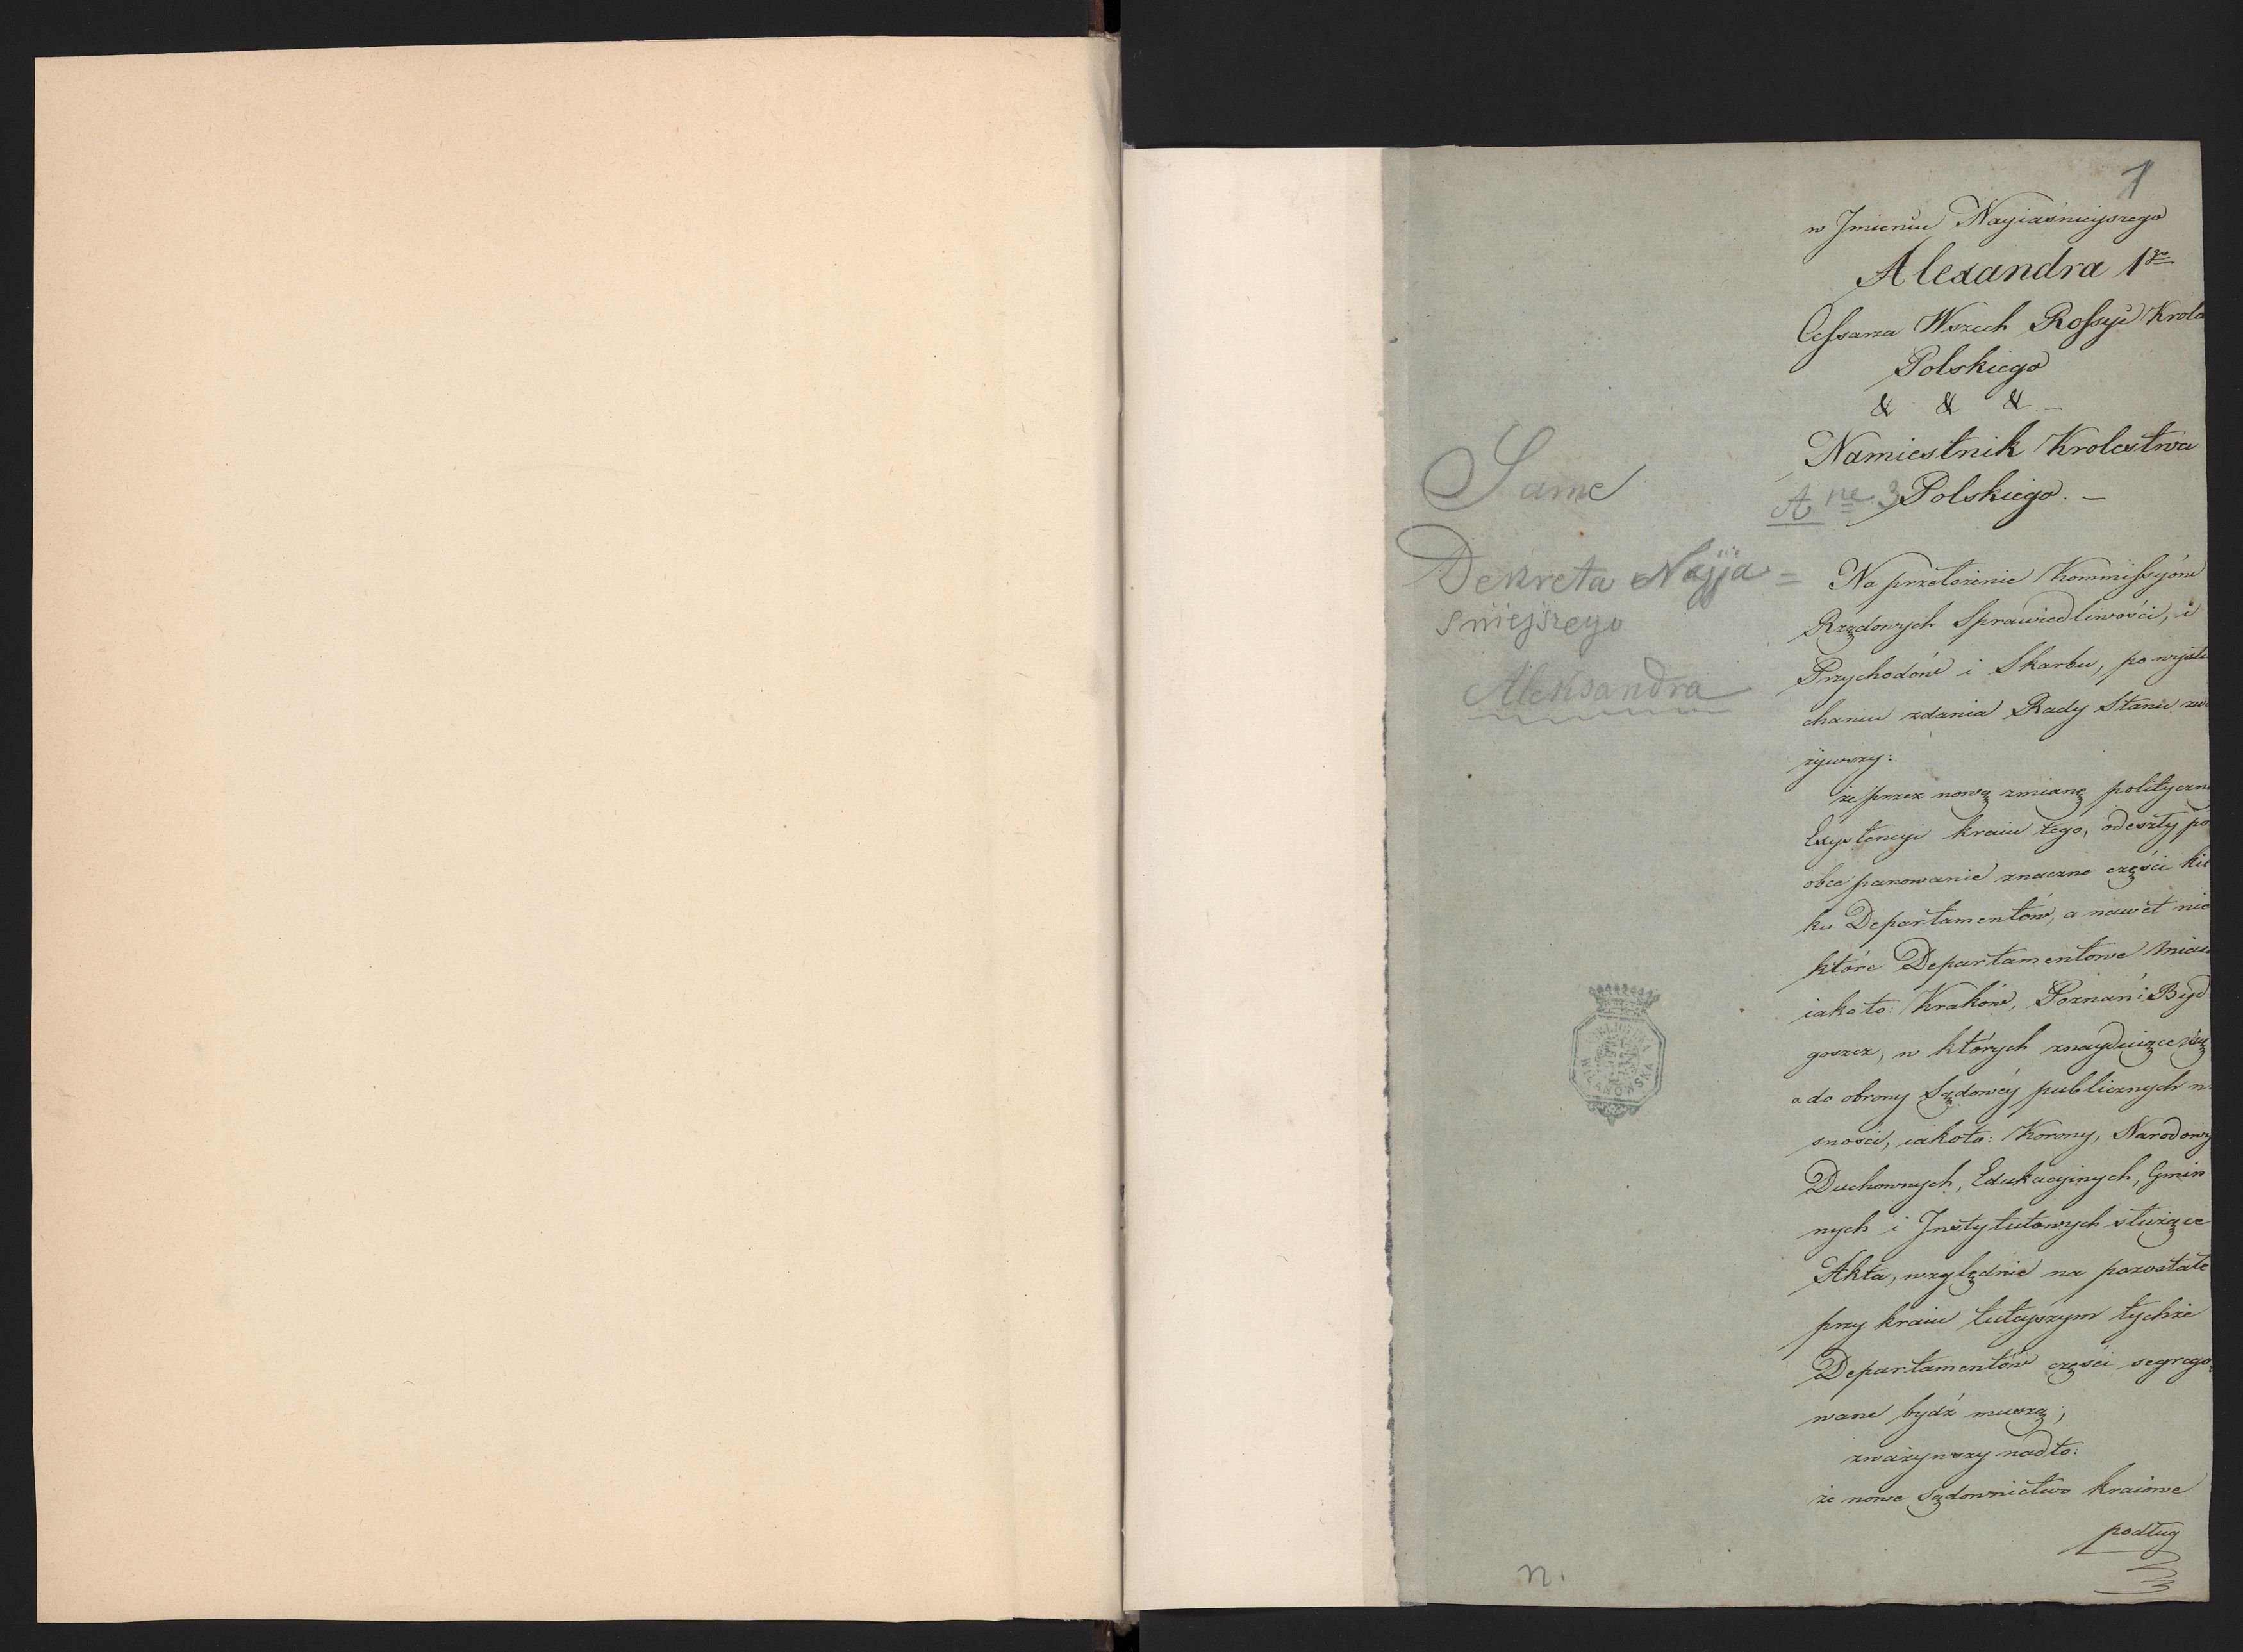 1
w Jmieniu Nayiasnieyszego
Alexandra 1go
Cessarza Wszech Rossyi Krola
Polskiego
& & & —
Namiestnik Krolestwa
Polskiego. —
Same
Dekreta Najja=
sniejszego
Aleksandra
A ne 3
Na przełożenie Kommissyów
Rządowych Sprawiedliwości, i
Przychodów i Skarbu, po wysłu
chaniu zdania Rady Stanu zwa
żywszy:
że przez nową zmianę polityczn
Exystencyi kraiu tego, odeszły po
obce panowanie znaczne części kil
ku Departamentów, a nawet nie
które Departamentowe Mias
iako to: Kraków, Poznań i Byd
goszcz, w których znayduiące się
a do obrony Sądowéy publicznych w
sności, iakoto: Korony, Narodowy
Duchownych, Edukacyinych, Gmin
nych i Jnstytutowych służące
Akta, względnie na pozostałe
przy kraiu tutejszym tychże
Departamentów części segrego=
wane bydź muszą;
zważywszy nadto:
że nowe Sądownictwo kraiowe
podług
BIBLIOTEKA WILANOWSKA
n.